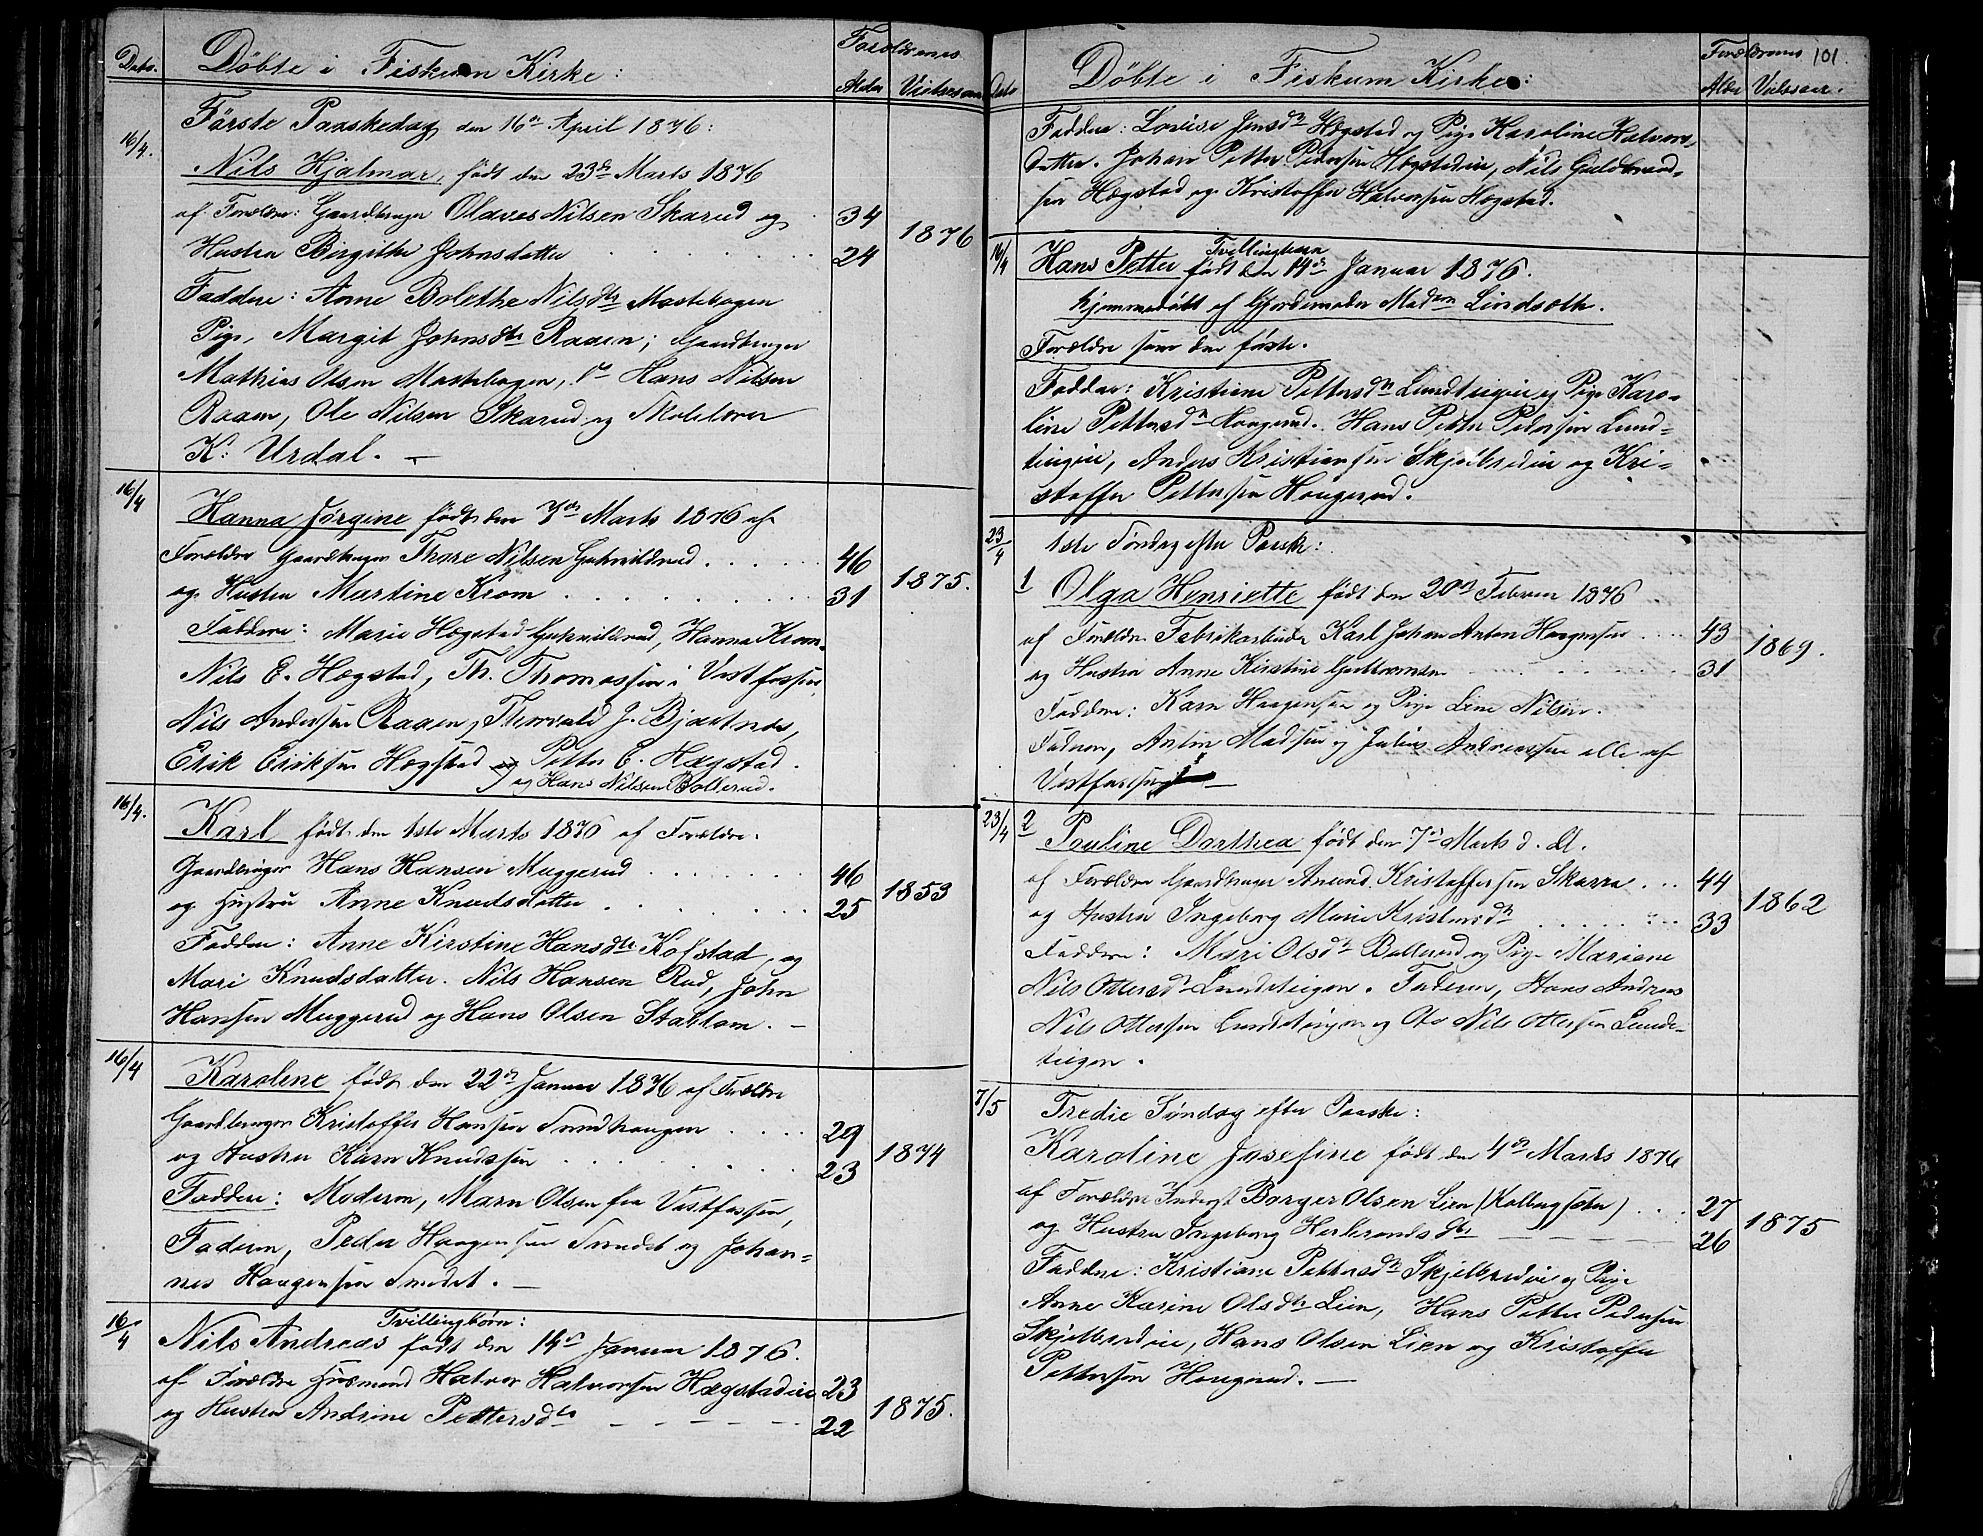 Dato.
Döbte i Fiskum Kirke:
Forældrenes
Alder
Vielsesaar
16/4.
Förste Paaskedag den 16de April 1876:
Nils Hjalmar, född den 23de Marts 1876
af Forældre: Gaardbruger Olaves Nilsen Skarud og
34
Hustru Birgithe Johnsdatter
24
1876
Faddere: Anne Bolethe Nilsdtr Mastebogen
Pige, Margit Johnsdtr Raaen; Gaardbruger
Mathias Olsen Mastebogen, do Hans Nilsen
Raaen, Ole Nilsen Skarud og Skolelærer
K: Urdal. —
16/4
Hanna Jørgine født den 7de Marts 1876 af
Forældre Gaardbruger Thore Nilsen Guhvildrud
46
og Hustru Martine Krom
31
1875.
Faddere: Marie Hægstad Guhvildrud, Hanna Krom
Nils E. Hægstad, Th. Thomassen i Vestfossen
Nils Andersen Raaen, Thorvald J. Bjartnes,
Erik Eriksen Hægstad og Petter E. Hægstad.
og Hans Nilsen Bollerud.
16/4.
Karl født den 1ste Marts 1876 af Forældre:
Gaardbruger Hans Hansen Muggerud
46
og Hustru Anne Knudsdatter
25
1853
Faddere: Anne Kirstine Hansdtr Kolstad, og
Mari Knudsdatter. Nils Hansen Rud, John
Hansen Muggerud og Hans Olsen Stablom. —
16/4
Karoline født den 22de Januar 1876 af Forældre
Gaardbruger Kristoffer Hansen Smedhaugen
29
og Hustru Karn Knudssen
23
1874
Faddere: Moderen, Marn Olsen fra Vestfossen,
Faderen, Peder Haagensen Smedet og Johan-
nes Haagensen Smedet. —
16/4
Tvillingbørn:
Nils Andreas født den 14de Januar 1876.
af Forældre Husmand Halvor Halvorsen Hægstadeie
23
og Hustru Andrine Pettersdtr
22
1875.
Dato
Döbte i Fiskum Kirke:
Forældrenes
101.
Alder
Vielsesaar.
Faddere: Lovise Jensdtr Hægstad og Pige Karoline Halvors
datter. Johan Petter Pedersen Hægstadeie, Nils Guldbrand-
sen Hægstad og Kristoffer Halvorsen Hægstad.
16/4
Tvillingbarn
Hans Petter født den 14de Januar 1876.
hjemmedøbt af Gjordemoder Madm Lindsæth.
Forældre som den første.
Faddere: Kristiane Pettersdtr Lundteigeie og Pige Karo-
line Pettersdtr Haugerud. Hans Petter Pedersen Lund-
teigeie, Anders Kristiansen Skjelbredeie og Kri-
stoffer Pettersen Haugerud.
23/4
1ste Søndag efter Paaske:
1
Olga Henriette født den 20de Februar 1876
af Forældre Fabrikarbeider Karl Johan Anton Haagensen
43
og Hustru Anne Kirstine Guttormsen
31
1869.
Faddere: Karn Haagensen og Pige Line Nilsen.
Faderen, Anton Madsen og Julius Andreassen alle af
Vestfossen
23/4
2
Pauline Dorthea født den 7de Marts d. A.
af Forældre Gaardbruger Amund Kristoffersen Skarra
44
og Hustru Ingeborg Marie Kristensdtr
33
1862
Faddere: Mari Olsdtr Bollerud og Pige Mariane
Nils Ottersdtr Lundeteigen. Faderen, Hans Andreas
Nils Ottersen Lundeteigen og Ole Nils Ottersen Lunde-
teigen.
7/5
Tredie Søndag efter Paaske:
Karoline Josefine født den 4de Marts 1876
af Forældre Inderst Borger Olsen Lien (Kolbergsæter)
27
og Hustru Ingeborg Herbrandsdtr
26
1875
Faddere: Kristiane Pettersdtr Skjelbredeie og Pige
Anne Karine Olsdtr Lien, Hans Petter Pedersen
Skjelbredeie, Hans Olsen Lien og Kristoffer
Pettersen Haugerud. —